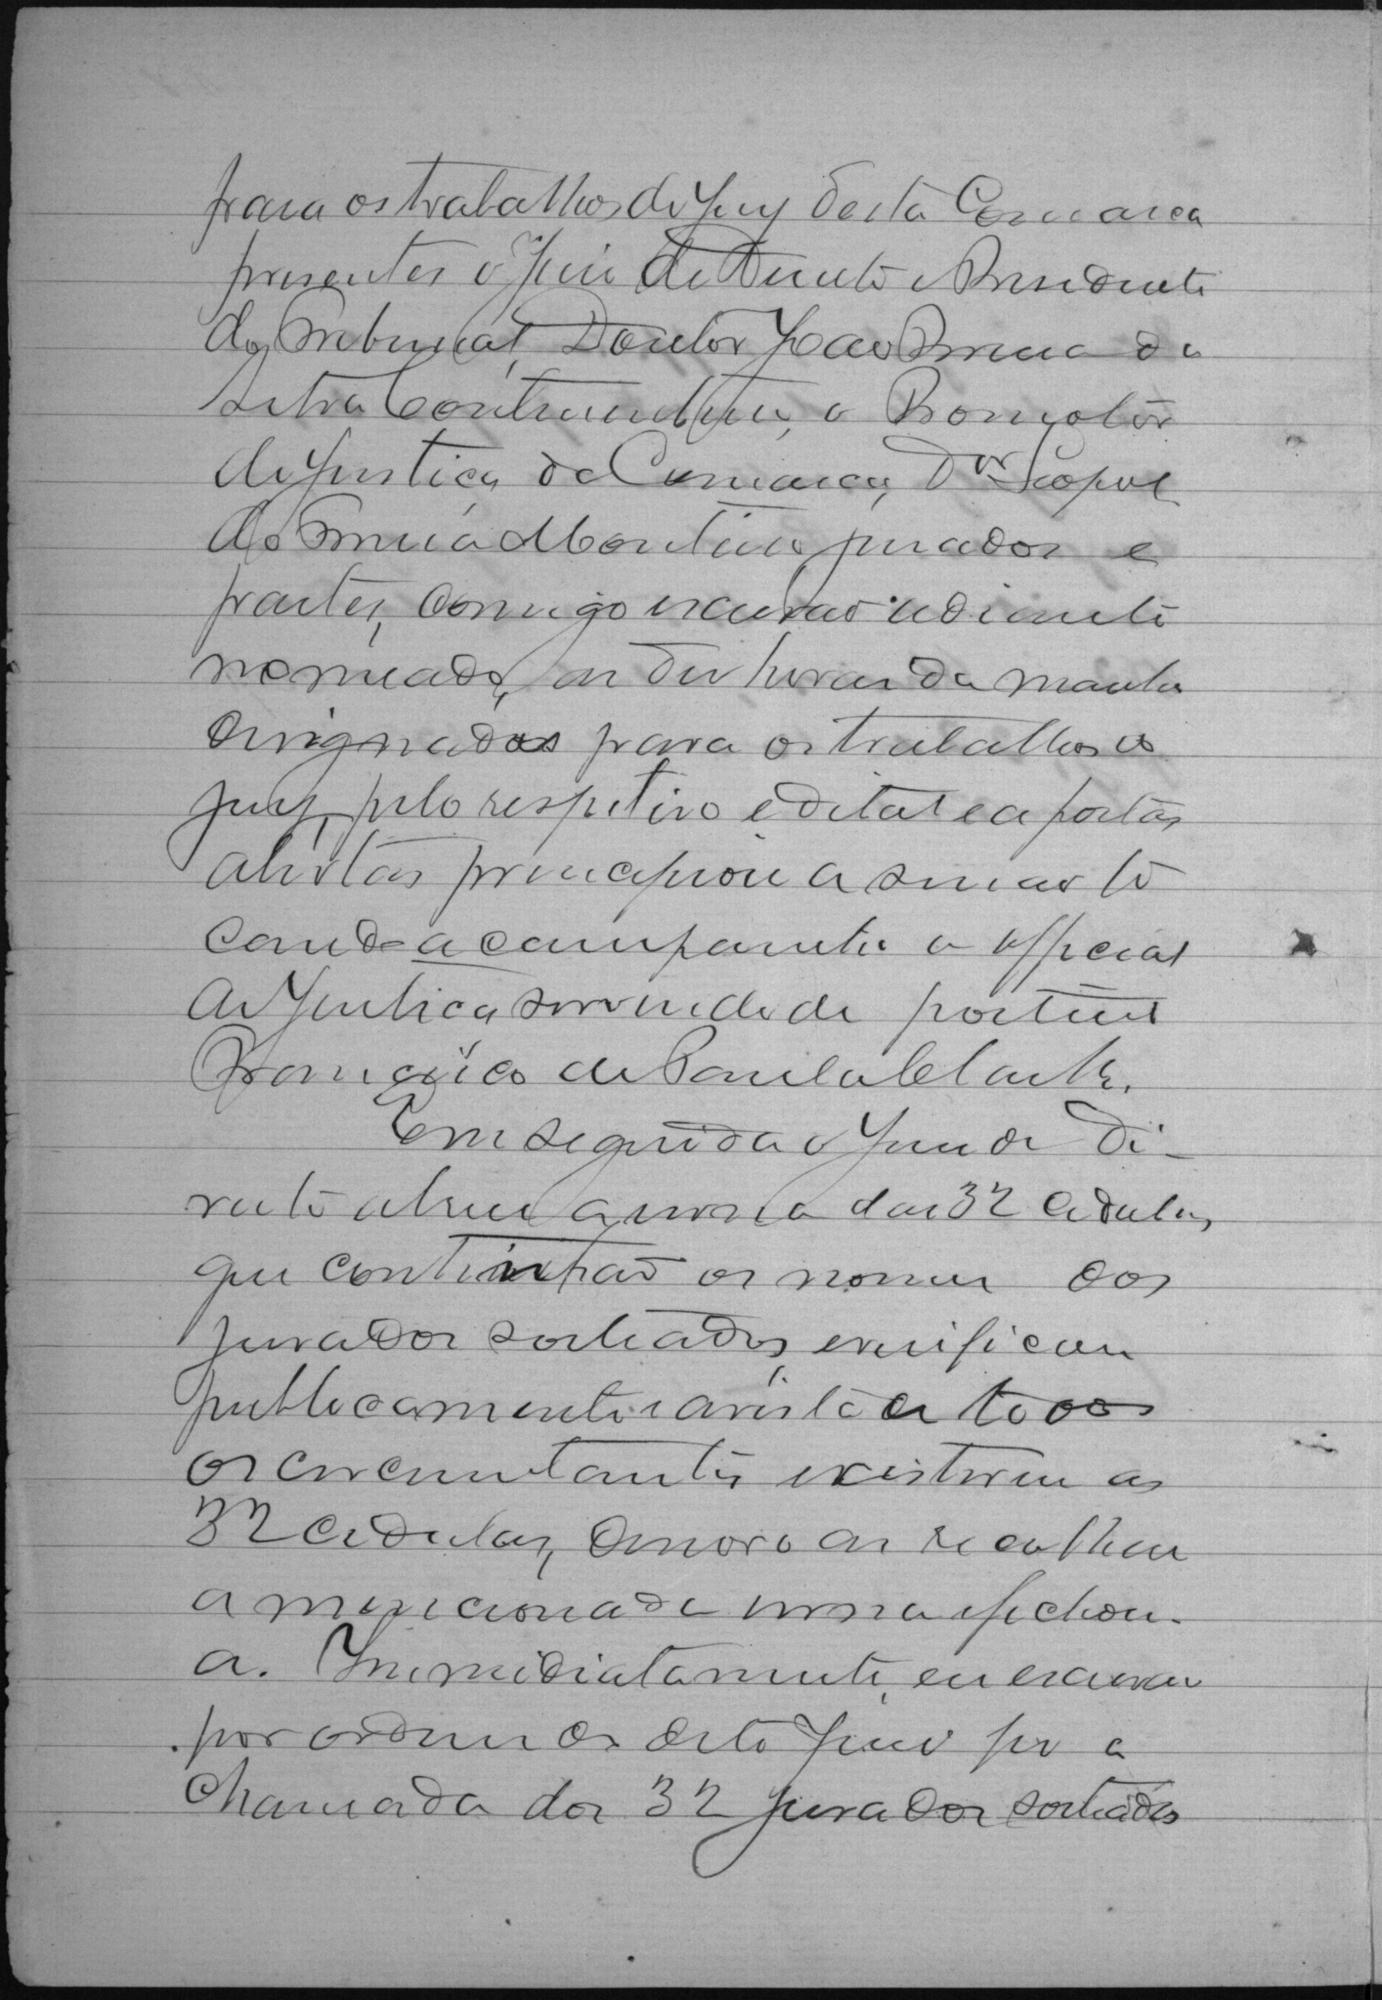 para os trabalhos do jury desta Comarca
presentes o Juiz de Direito e Presidente
do Tribunal, Doutor João
Silva o Promotor
de Justiça da Comarca, Dr Leopol
do Monteiro jurados e
partes, comigo escrivão adiante
nomeado, as dez horas da manhã
designadas para os trabalhos do
jury, pelo respetivo edital e a portas
abertas principiou a sessão to
cando a campainha o official
de Justiça servindo de porteiro
Francisco de Paula
Em seguida o Juiz de Di-
reito abriu a urna das 32 cedulas,
que continhão os nomes dos
jurados sorteados, e verificou
publicamente e a vista de todos
os circunstantes existirem as
32 cedulas, de novo as recolheu
a mencionada urna e fechou-
a. Immidiatamente, eu escrivão
por ordem do dito Juiz fiz a
chamada dos 32 jurados sorteados